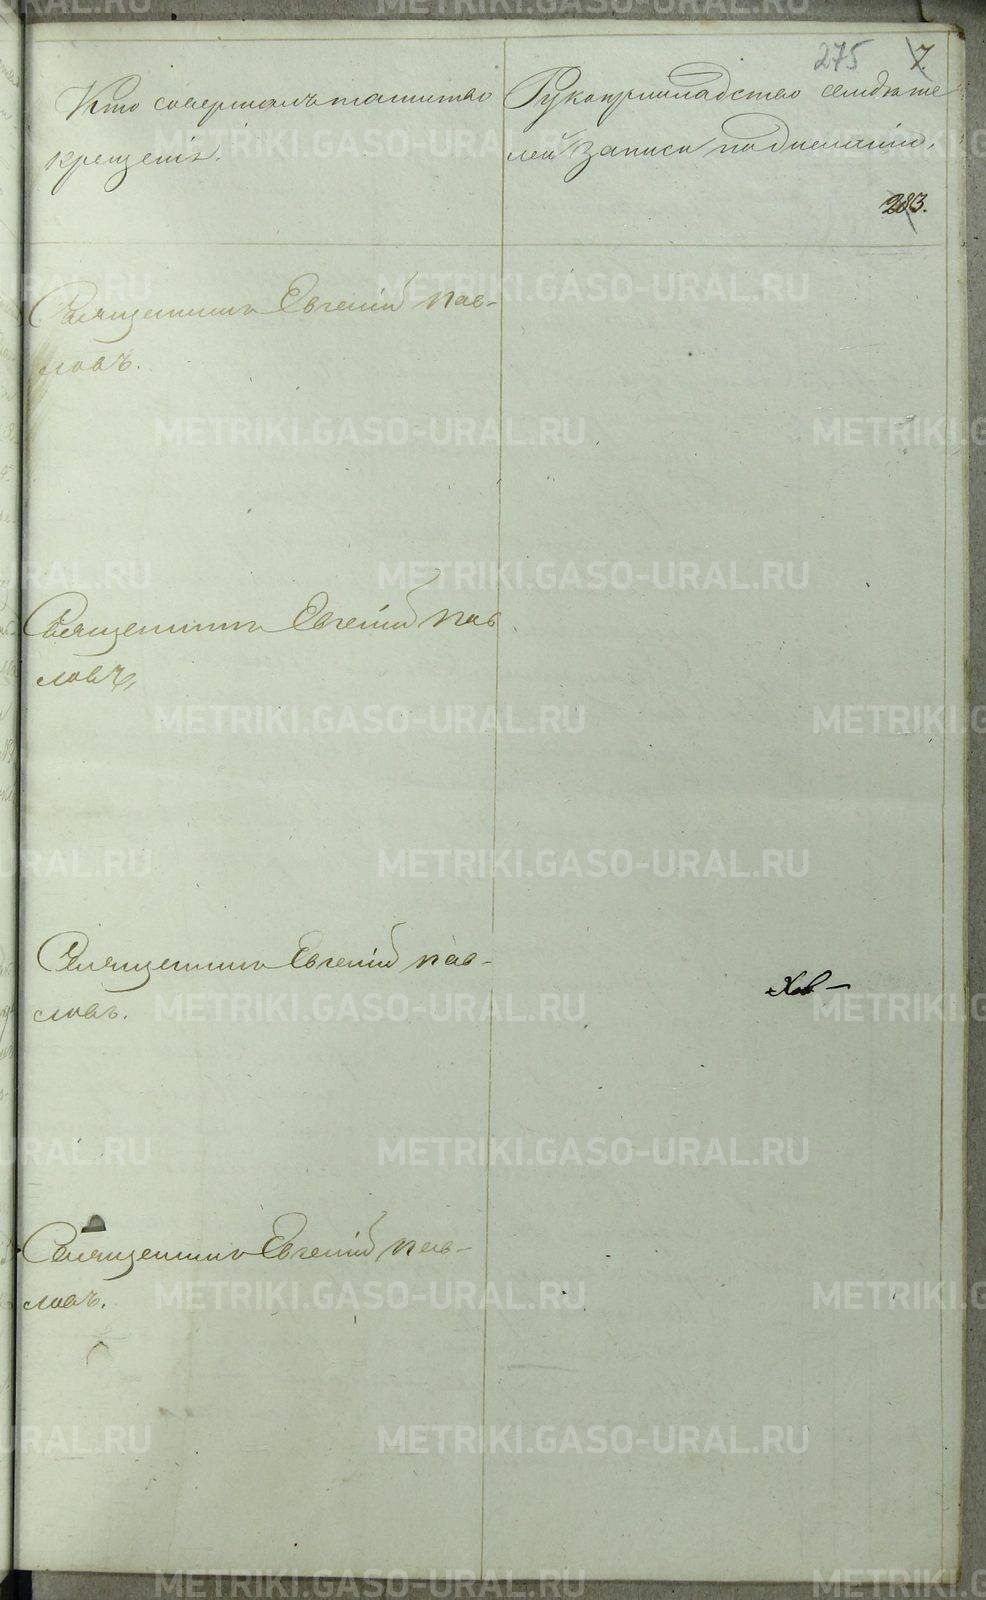 275 7.
Кто совершалъ таинство
крещенія.
Рукоприкладство свидѣте
лей записи по желанію.
283.
Священникъ Евгеній Пав-
ловъ.
Священникъ Евгеній Пав
ловъ,
Священникъ Евгеній Пав-
ловъ.
Священникъ Евгеній Пав-
ловъ.
METRIKI.GASO-URAL.RU